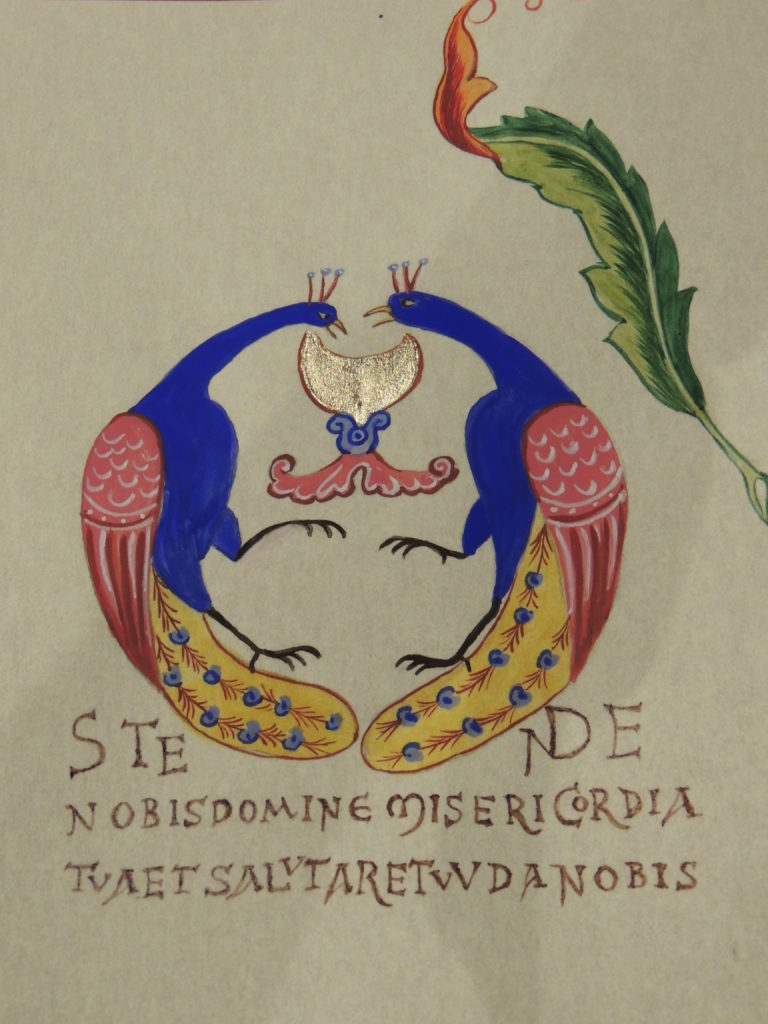 STE NDE
NOBISDOMINE MISERICORDIA
TVAETSALVTARETVVDANOBIS